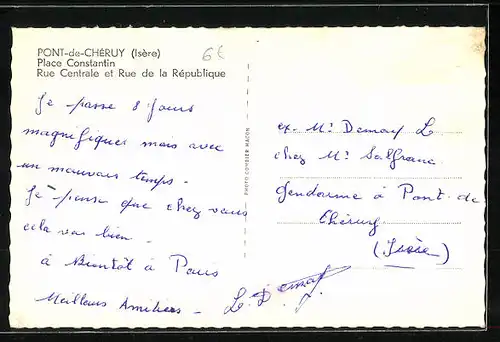 PONT-de-CHÉRUY (Isère)
Place Constantin
Rue Centrale et Rue de la République
6€
Je passe 8 jours
magnifiques mais avec
un mauvais temps -
Je pense que chez vous
cela vas bien -
à Bientôt à Paris
Meilleurs Amitiées - L. Demay
PHOTO COMBIER MACON
ex. Mr Demay L
chez Mr Salfranc
gendarme à Pont-de
Chéruy
(Isère)